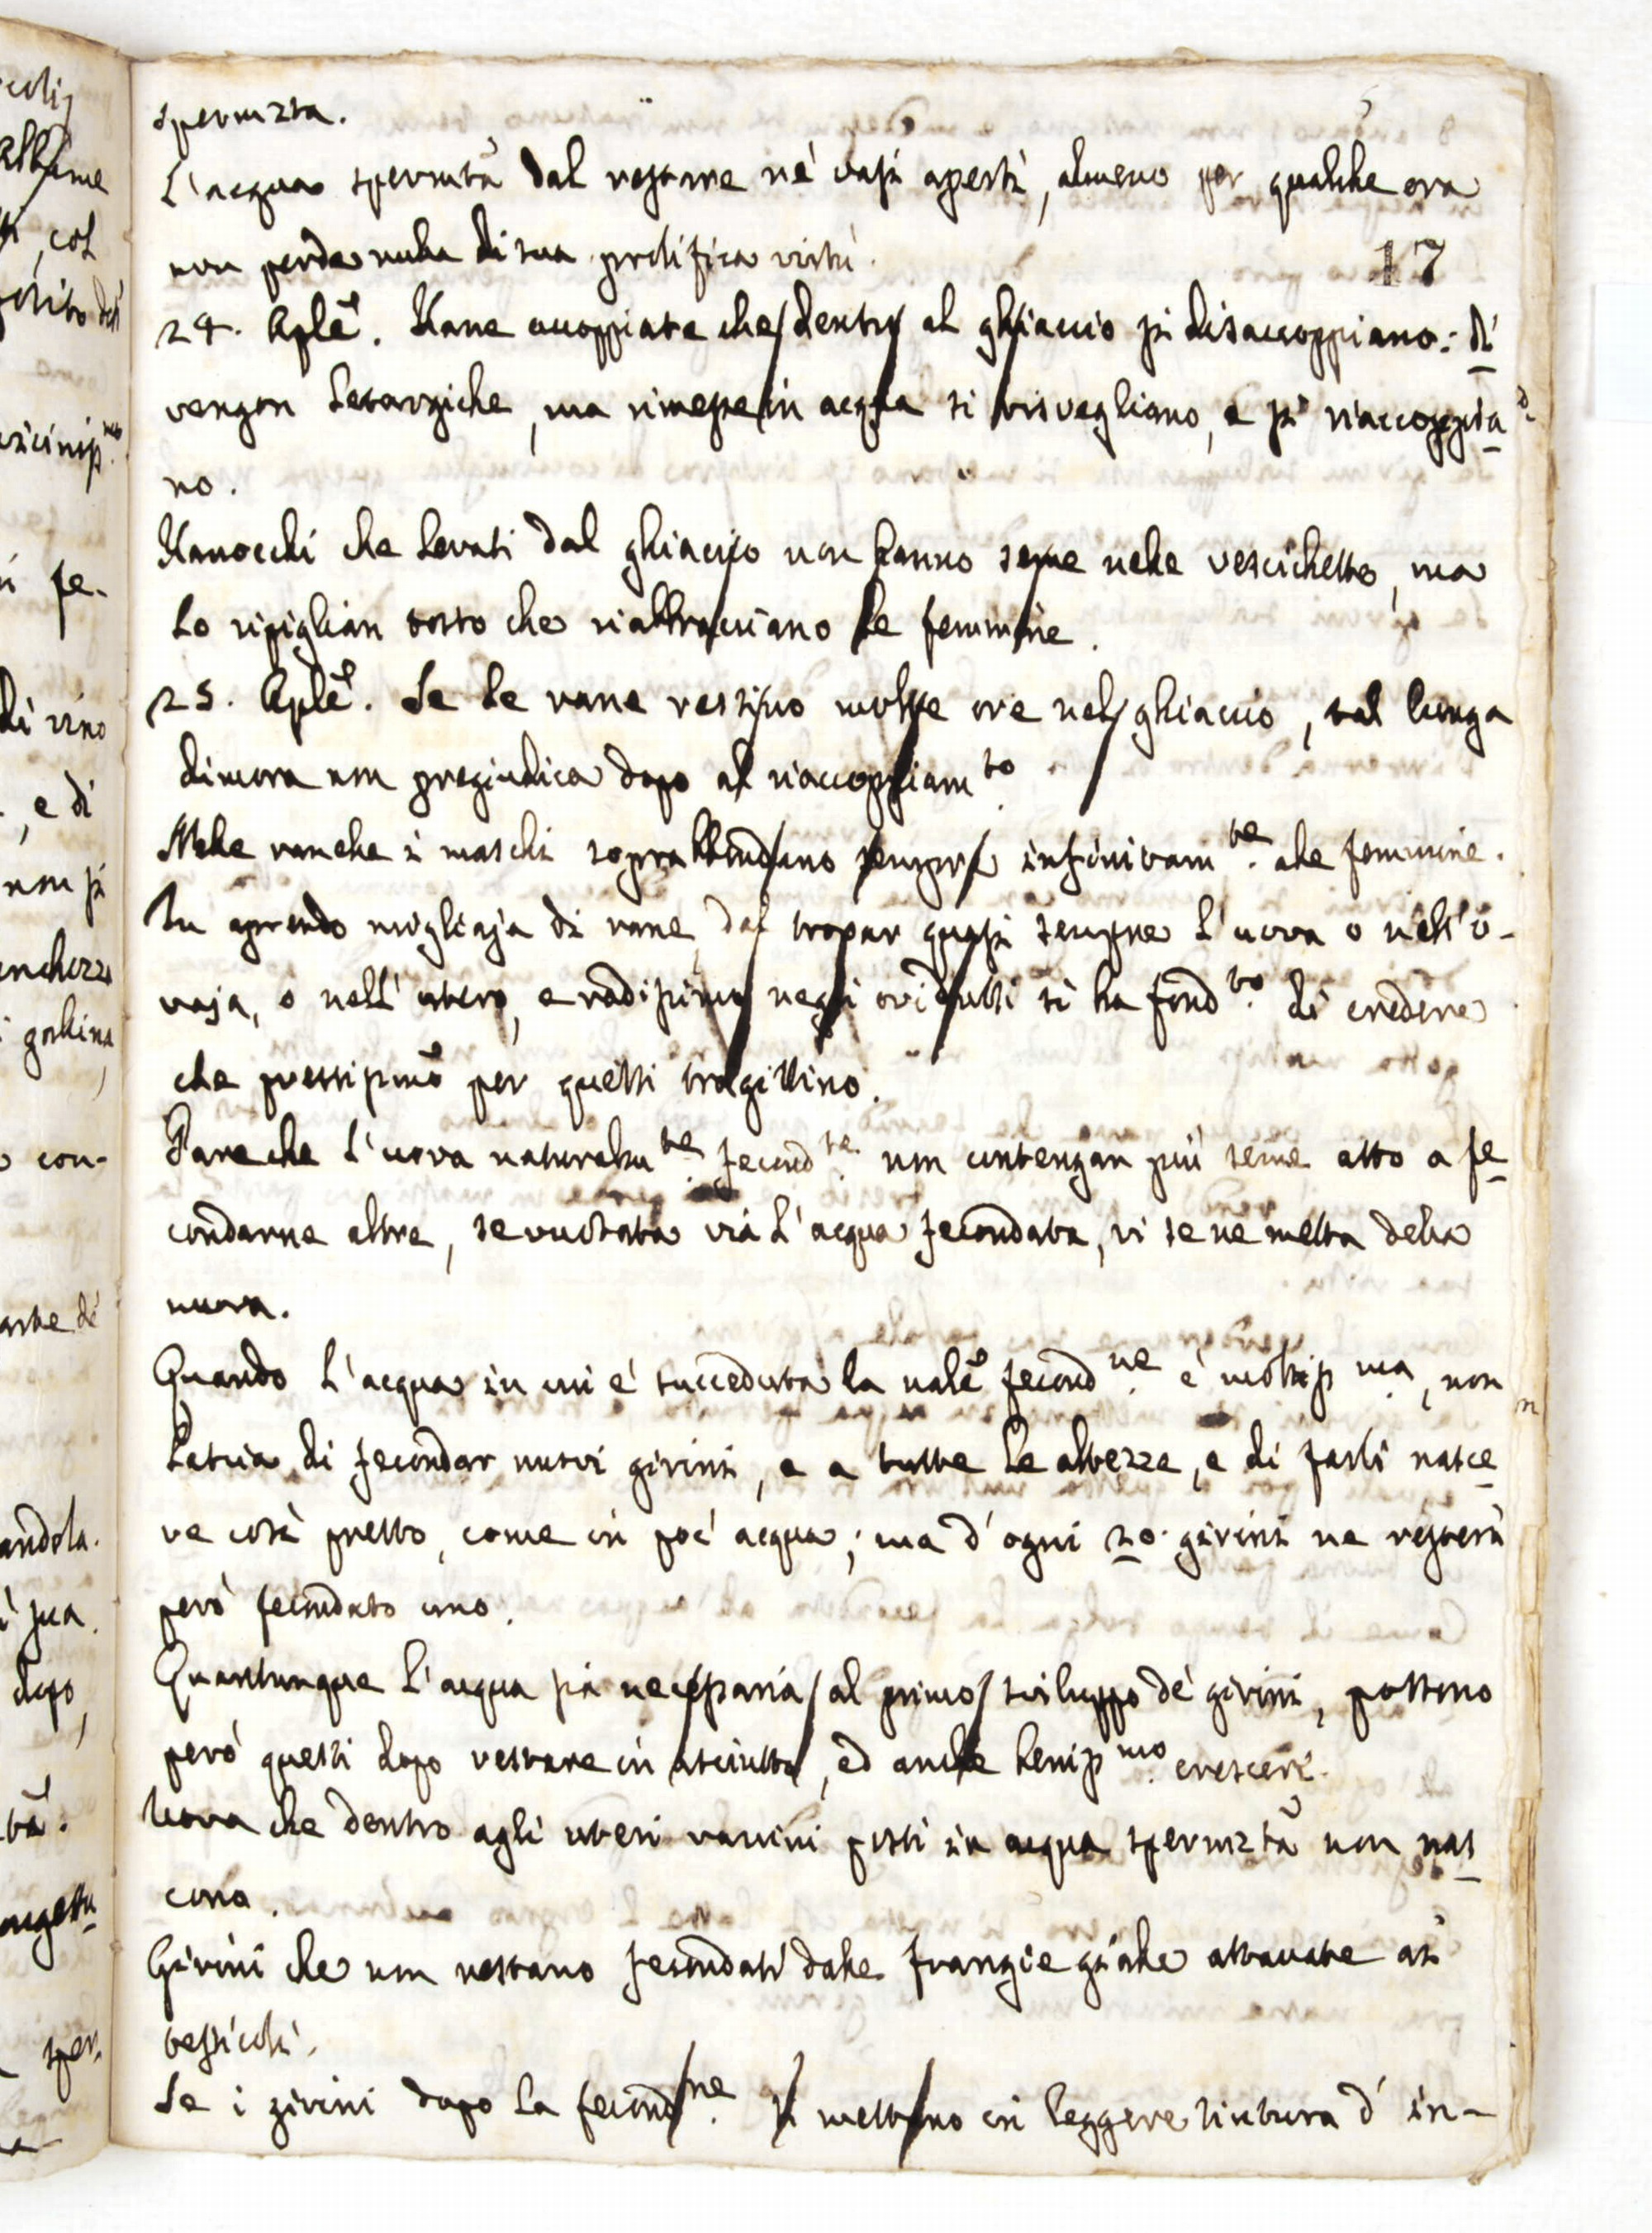 spermzta.
L'acqua spermtã dal restarne nè vasi aperti, almeno per qualche ora
non perde nulla di sua prolifica virtù.
17
24. Aplẽ. Rane accoppiate che dentro al ghiaccio si disaccoppiano: di
vengon letargiche, ma rimesse in acqua si risvegliano, e si riaccoppia
no.
Ranocchi che levati dal ghiaccio non hanno seme nelle vescichette, ma
lo ripiglian tosto che riabbracciano le femmine.
25. Aplẽ. Se le rane restino molte ore nel ghiaccio, tal lunga
dimora non pregiudica dopo al riaccoppiam.to
Nelle ranelle i maschi soprabbondano sempre infinitam.te alle femmine.
In aprendo migliaja di rane, dal trovar quasi sempre l'uova o nell'o-
vaja, o nell'utero, e radissimo negli ovidutti si ha fond.to di credere
che prestissmõ per questi tragittino.
Pare che l'uova naturalm.te fecond.te non contengan più seme atto a fe
condarne altre, se vuotata via l'acqua fecondata, vi se ne metta della
nuova.
Quando l'acqua in cui è succeduta la nalẽ fecond.ne è moltiss.ma, non
lascia di fecondar nuovi girini, e a tutte le altezze, e di farli nasce
re così presto, come in poc' acqua; ma d'ogni 20. girini ne resterà
però fecondato uno.
Quantunque l'acqua sia necessaria al primo sviluppo de' girini, possono
però questi dopo restare in asciutto, ed anche beniss.mo crescere.
Uova che dentro agli uteri ranini posti in acqua spermztã non nas
cono.
Girini che non restano fecondati dalle frangie gialle attaccate ai
testicoli.
Se i girini dopo la fecond.ne si mettono in leggere tintura d' in-